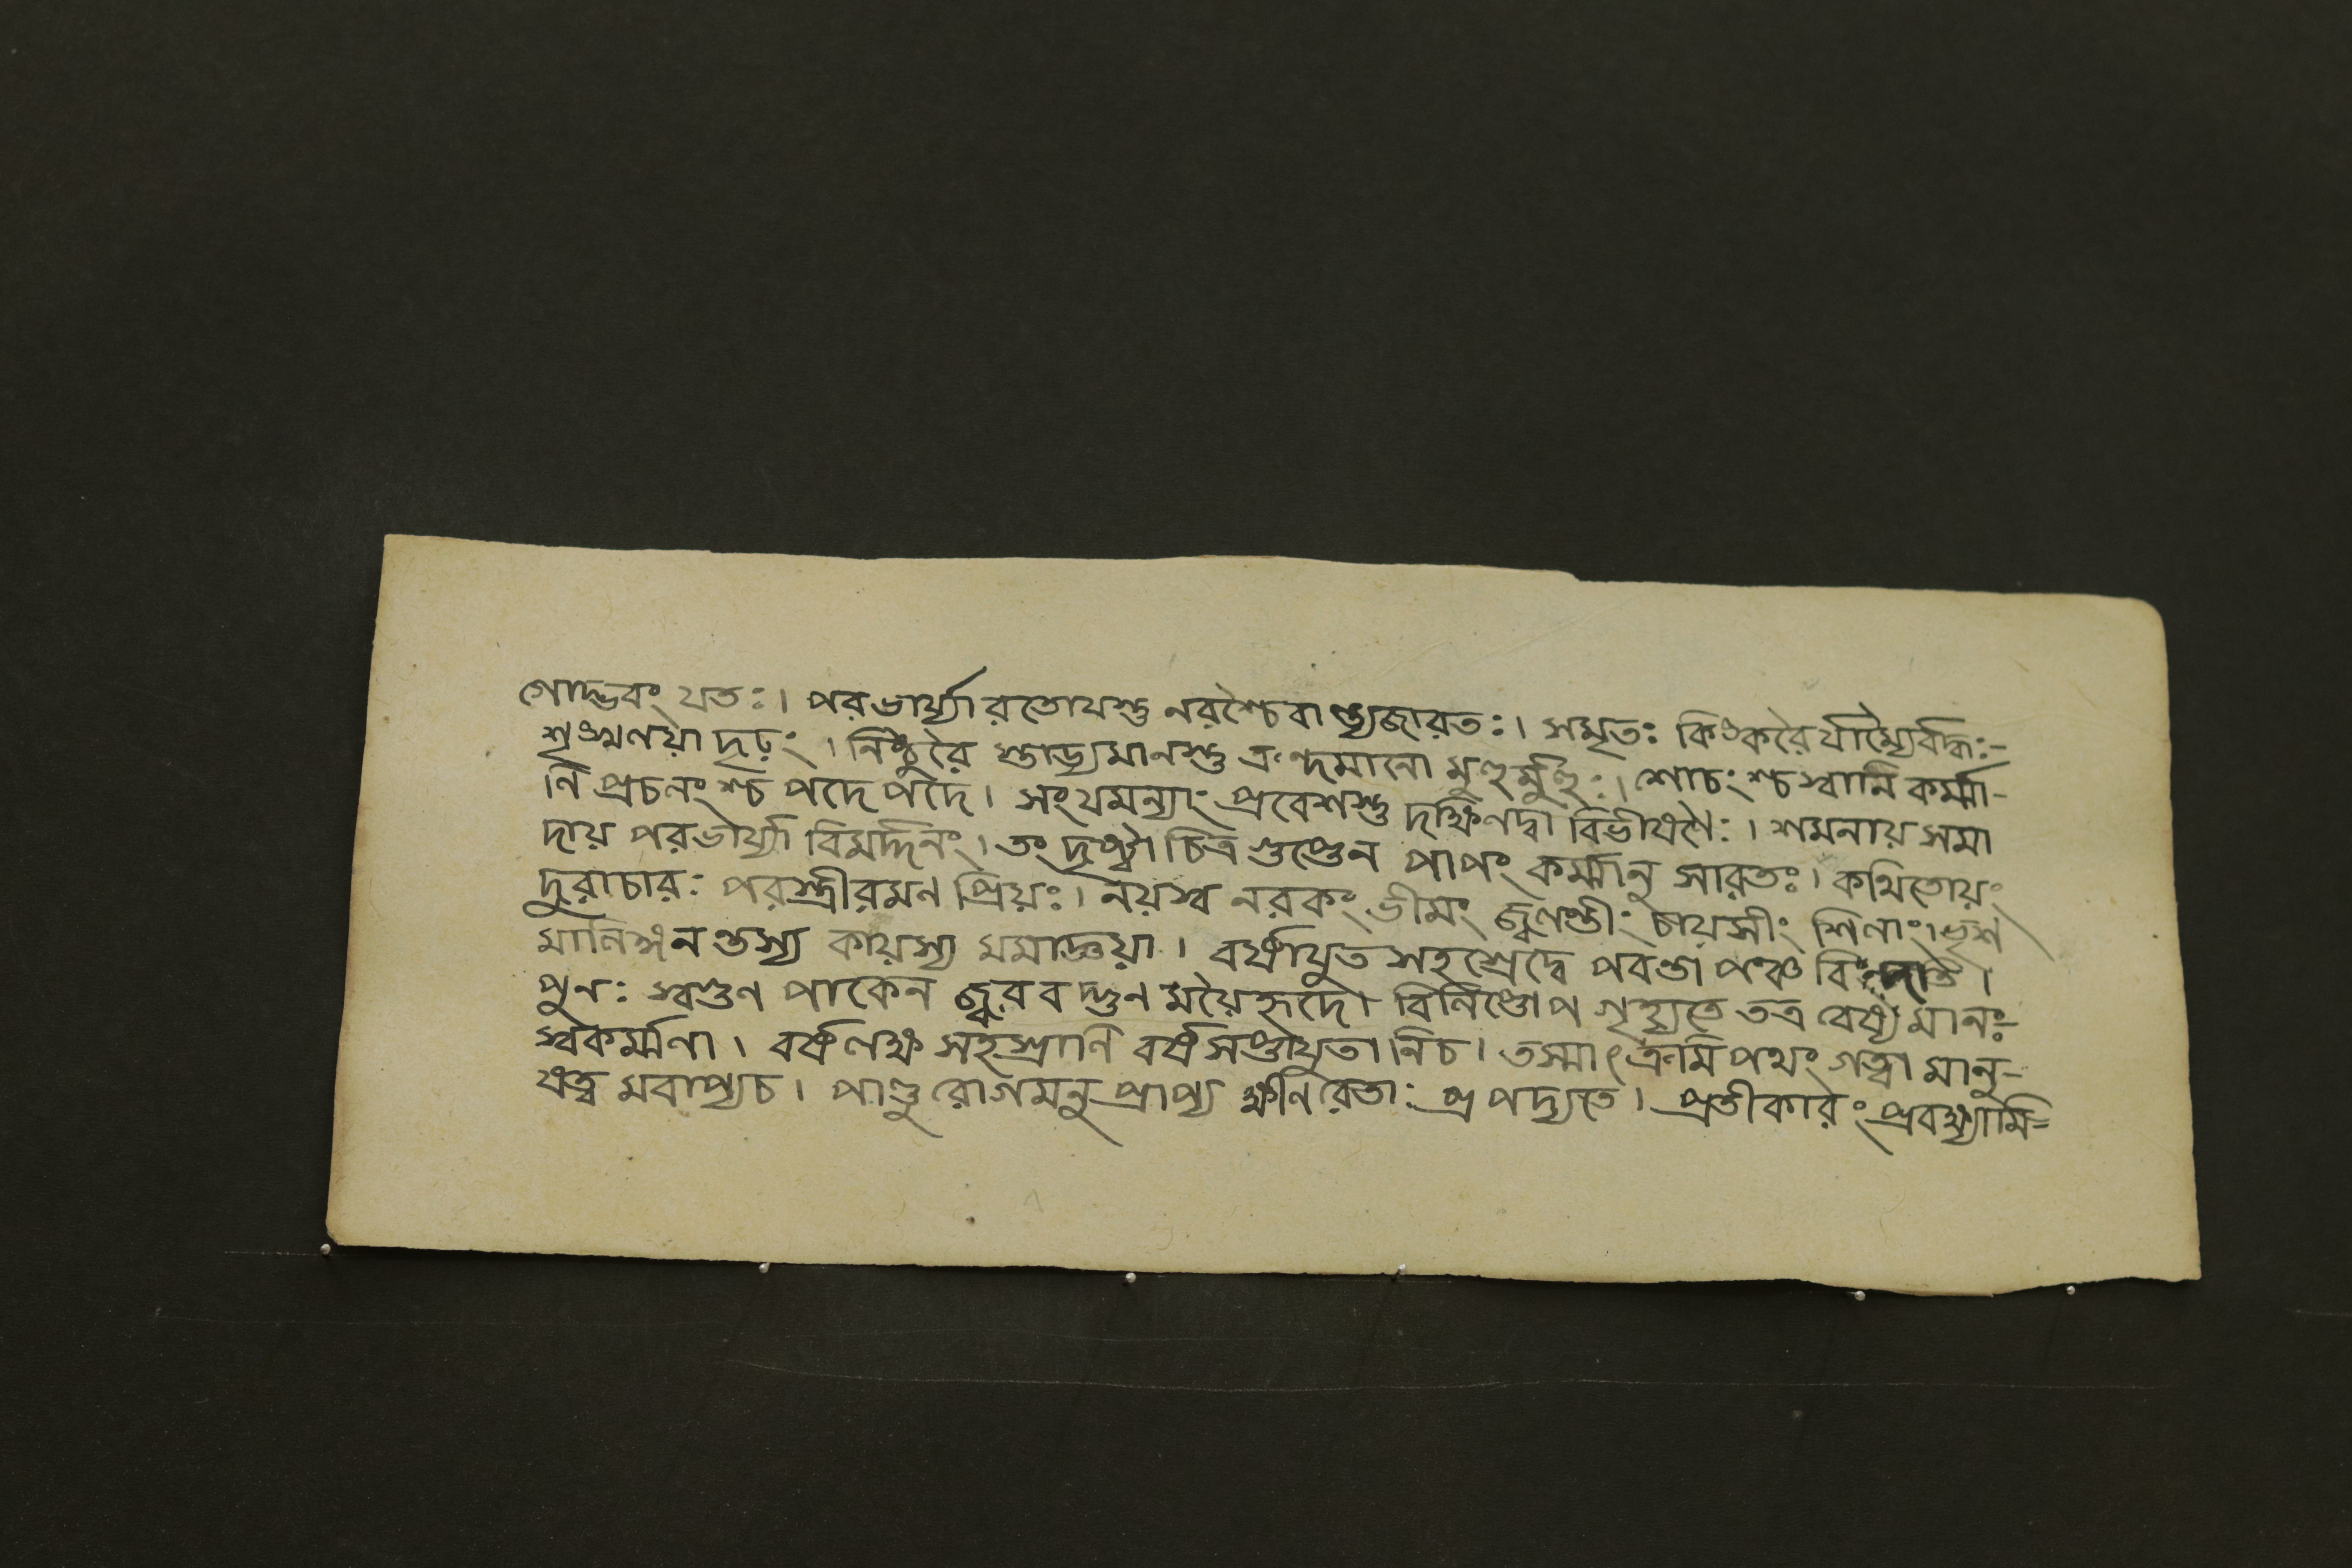 গোদ্ভবং যতঃ। পরভার্য্যারতোযস্তু নরশ্চৈবান্ত্যজারতঃ। সমৃতঃ কিংকরৈর্যাম্যৈর্বদ্ধঃ-
শৃংখলয়া দৃঢ়ং। নিষ্ঠুরৈ স্তাড্যমানস্তু ক্রন্দমানো মুহুর্মুহুঃ। শোচংশ্চ স্বানি কর্ম্মা-
নি প্রচলংশ্চ পদে পদে। সংযমন্যাং প্রবেশস্তু দক্ষিণদ্বা বিভীষণৈঃ। শমনায় সমা
দায় পরভার্য্যা বিমর্দ্দিনং। তং দৃষ্ট্বা চিত্র গুপ্তেন পাপং কর্ম্মানু সারতঃ। কথিতোয়ং
দুরাচারঃ পরস্ত্রীরমণ প্রিয়ঃ। নয়স্ব নরকং ভীমং জ্বলন্তীং চায়সীং শিলাং। ভৃশ
মালিঙ্গন তস্য কায়স্য মমাজ্ঞয়া। বর্ষাযুত সহস্রেদ্বে পবন্তা পঞ্চ
পুনঃ স্বগুণ পাকেন জ্বর বদ্গুণ ময়ৈর্হৃদো বিনিস্তোপ গৃহ্যতে তত্র বেষ্ট্যমানঃ-
স্বকর্ম্মণা। বর্ষলক্ষ সহস্রাণি বর্ষসপ্তাযুতানিচ। তস্মাৎ ক্রমি পথং গত্বা মানু-
ষত্ব মবাপ্যচ। পাণ্ডু রোগমনু প্রাপ্য ক্ষীণরেতাঃ প্রপদ্যতে। প্রতীকারং প্রবক্ষ্যামি=